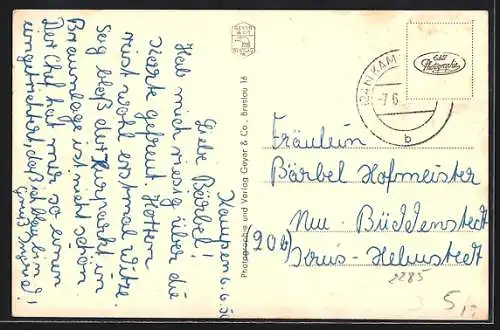 Kampen 6.6.5
Liebe Bärbel!
Hab mich riesig über die
Karte gefreut. Hotten
reist wohl erstmal Witze.
Sag bloß der Kurpark in
Braunlage ist nicht schön.
Der Chef hat mir so einen
eingetrichtert, daß ich blau bin
Gruß
Photographie und Verlag Geyer & Co., Breslau 16
-7.6.
b
Echte Photographie
Fräulein
Bärbel Hofmeister
Neu-Büddenstedt
(20b) Kreis-Helmstedt
2285
5,-